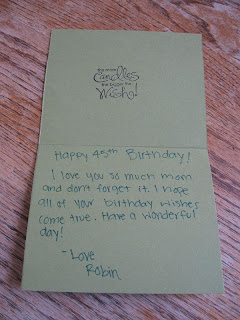 the more
Candles
the bigger the
Wishes!
Happy 45th Birthday!
I love you so much mom
and don't forget it. I hope
all of your birthday wishes
come true. Have a wonderful
day!
- Love
Robin